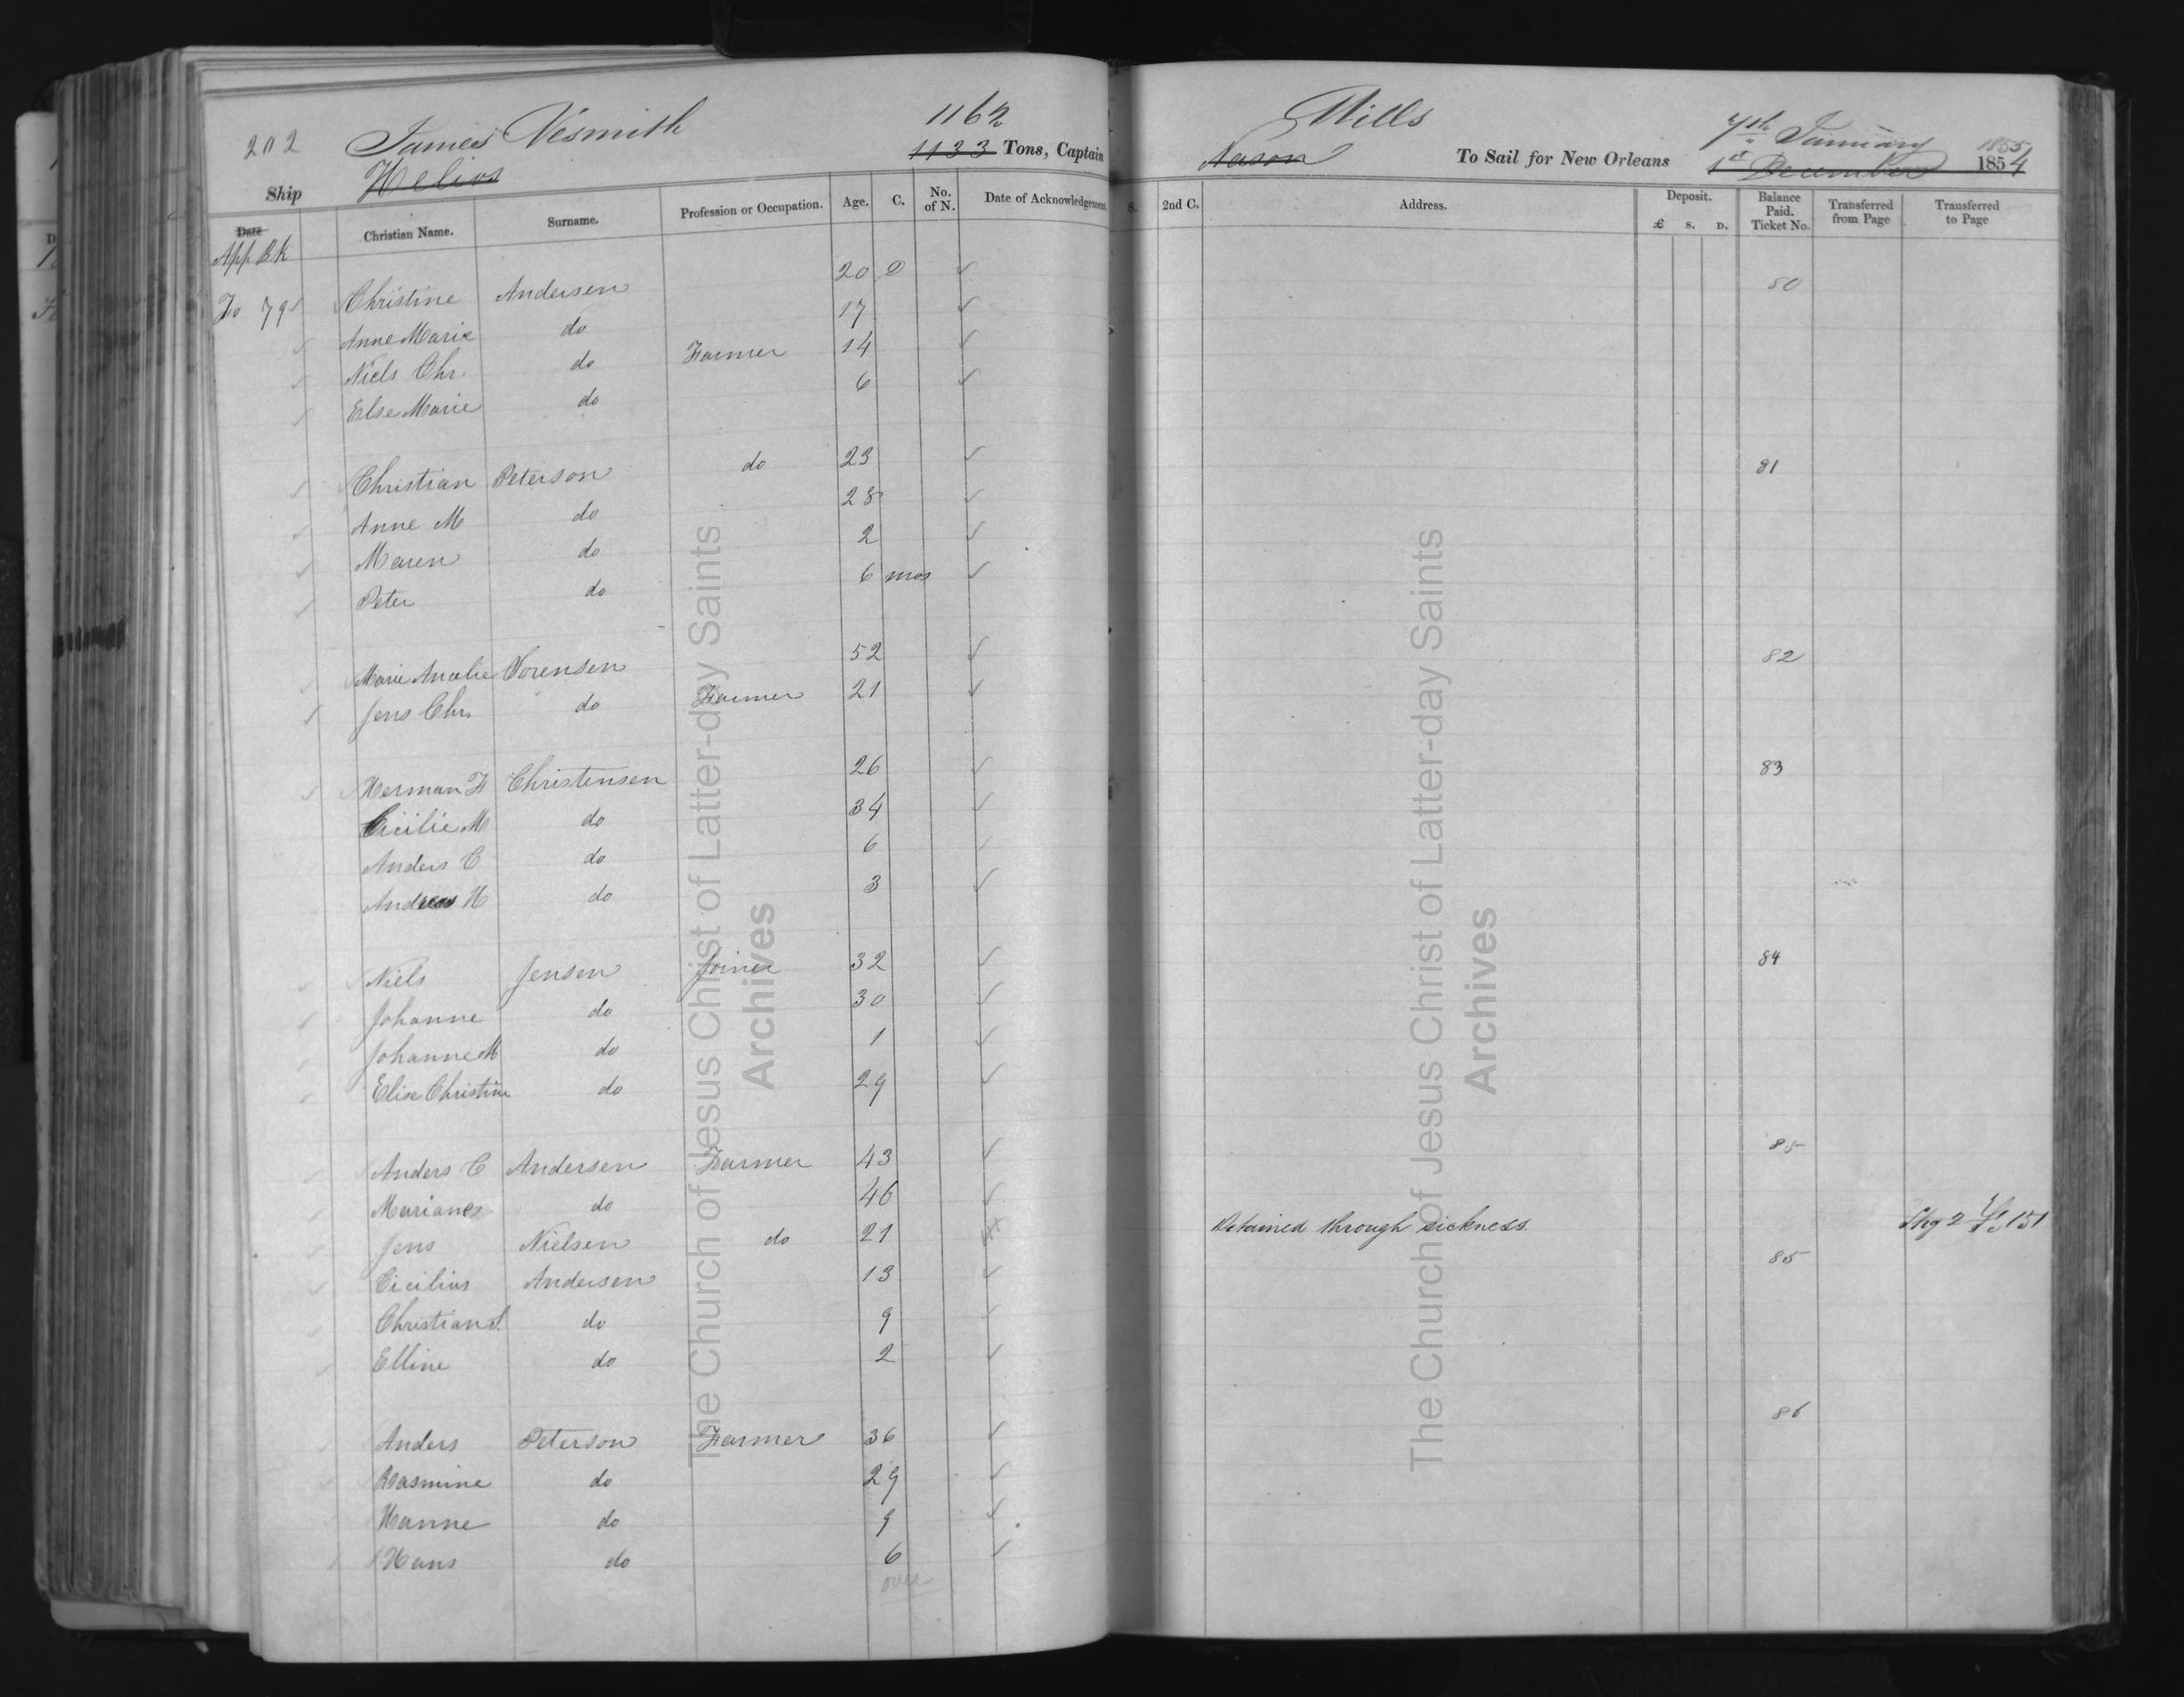 202 James Nesmith 1162 Mills 7th January 1855
Ship Helios 1133 Tons, Captain Nason To Sail for New Orleans 1st December 1854
Date Christian Name. Surname. Profession or Occupation. Age. C. No. of N. Date of Acknowledgement. S. 2nd C. Address. Deposit. £ S. D. Balance Paid. Ticket No. Transferred from Page Transferred to Page
App Bk
Fo 79 Christine Andersen 20 D ✓ 80
✓ Anne Marie do 17 ✓
✓ Niels Chr. do Farmer 14 ✓
✓ Else Marie do 6 ✓
✓ Christian Peterson do 23 ✓ 81
✓ Anne M do 28 ✓
✓ Maren do 2 ✓
✓ Peter do 6 mos ✓
✓ Marie Amalie Sorensen 52 ✓ 82
✓ Jens Chr. do Farmer 21 ✓
✓ Herman F Christensen 26 ✓ 83
Cicilie M do 34 ✓
Anders C do 6 ✓
Andreas H do 3 ✓
✓ Niels Jensen Joiner 32 ✓ 84
✓ Johanne do 30 ✓
✓ Johanne M do 1 ✓
✓ Elise Christine do 29 ✓
✓ Anders C Andersen Farmer 43 ✓ 85
✓ Mariane do 46 ✓
Jens Nielsen do 21 Detained through sickness Shg 2 Fo 151
✓ Cicilius Andersen 13 ✓ 85
✓ Christian S. do 9 ✓
✓ Elline do 2 ✓
✓ Anders Peterson Farmer 36 ✓ 86
✓ Rasmine do 29 ✓
✓ Hanne do 9 ✓
✓ Hans do 6 ✓
over
The Church of Jesus Christ of Latter-day Saints
Archives
The Church of Jesus Christ of Latter-day Saints
Archives